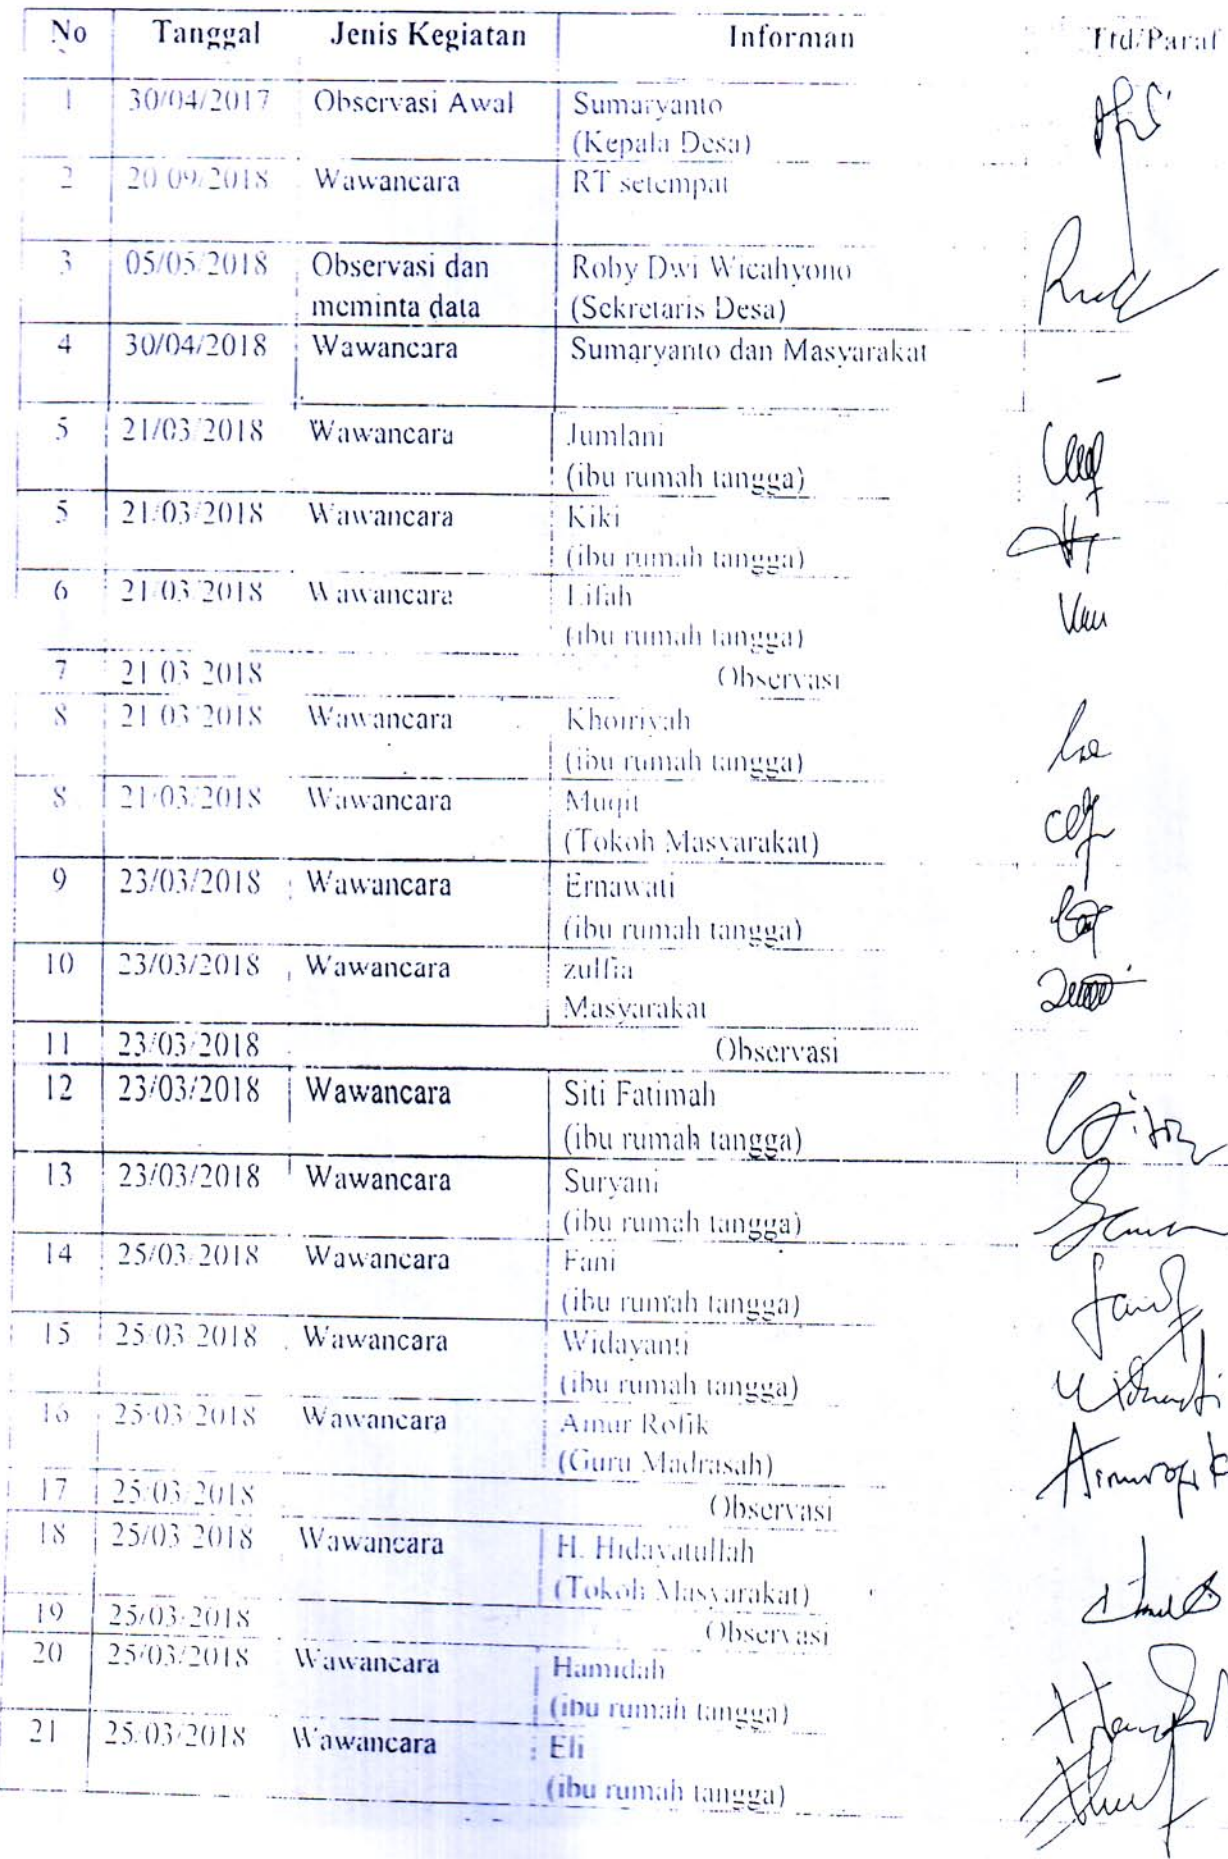 No Tanggal Jenis Kegiatan Informan Ttd/Paraf
1 30/04/2017 Observasi Awal Sumaryanto
(Kepala Desa)
2 20/09/2018 Wawancara RT setempat
3 05/05/2018 Observasi dan Roby Dwi Wicahyono
meminta data (Sekretaris Desa)
4 30/04/2018 Wawancara Sumaryanto dan Masyarakat
-
5 21/03/2018 Wawancara Jumlani
(ibu rumah tangga)
5 21/03/2018 Wawancara Kiki
(ibu rumah tangga)
6 21/03/2018 Wawancara Lifah
(ibu rumah tangga)
7 21/03/2018 Observasi
8 21/03/2018 Wawancara Khoiriyah
(ibu rumah tangga)
8 21/03/2018 Wawancara Muqit
(Tokoh Masyarakat)
9 23/03/2018 Wawancara Ernawati
(ibu rumah tangga)
10 23/03/2018 Wawancara zulfia
Masyarakat
11 23/03/2018 Observasi
12 23/03/2018 Wawancara Siti Fatimah
(ibu rumah tangga)
13 23/03/2018 Wawancara Suryani
(ibu rumah tangga)
14 25/03/2018 Wawancara Fani
(ibu rumah tangga)
15 25/03/2018 Wawancara Widayanti
(ibu rumah tangga)
16 25/03/2018 Wawancara Ainur Rofik
(Guru Madrasah)
17 25/03/2018 Observasi
18 25/03/2018 Wawancara H. Hidayatullah
(Tokoh Masyarakat)
19 25/03/2018 Observasi
20 25/03/2018 Wawancara Hamidah
(ibu rumah tangga)
21 25/03/2018 Wawancara Eli
(ibu rumah tangga)